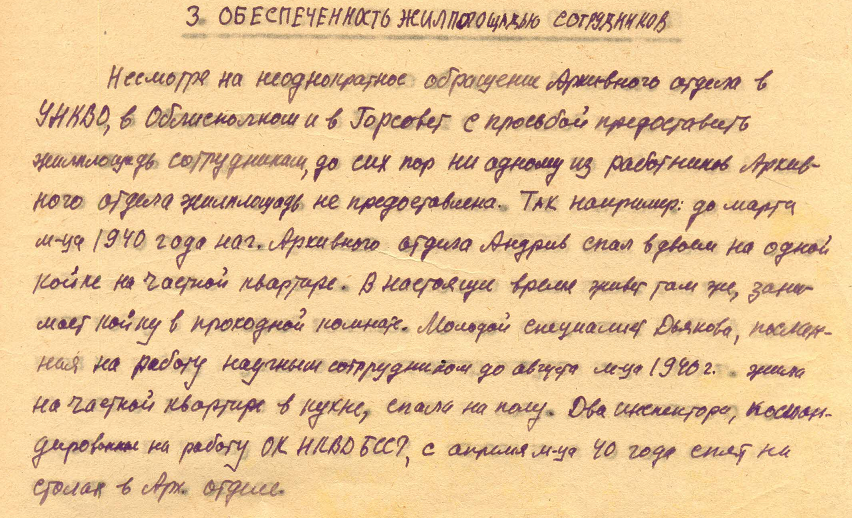 3 ОБЕСПЕЧЕННОСТЬ ЖИЛПЛОЩАДЬЮ СОТРУДНИКОВ
Несмотря на неоднократное обращение Архивного отдела в
УНКВО, в Облисполком и в Горсовет с просьбой предоставить
жилплощадь сотрудникам, до сих пор ни одному из работников Архив-
ного отдела жилплощадь не предоставлена. Так например: до марта
м-ца 1940 года нач. Архивного отдела Андрив спал вдвоем на одной
койке на частной квартире. В настоящее время живет там же, зани-
мает койку в проходной комнате. Молодой специалист Дьякова, послан-
ная на работу научным сотрудником до августа м-ца 1940 г. жила
на частной квартире в кухне, спала на полу. Два инспектора, коман-
дированные на работу ОК НКВД БССР, с апреля м-ца 40 года спят на
столах в Арх. отделе.